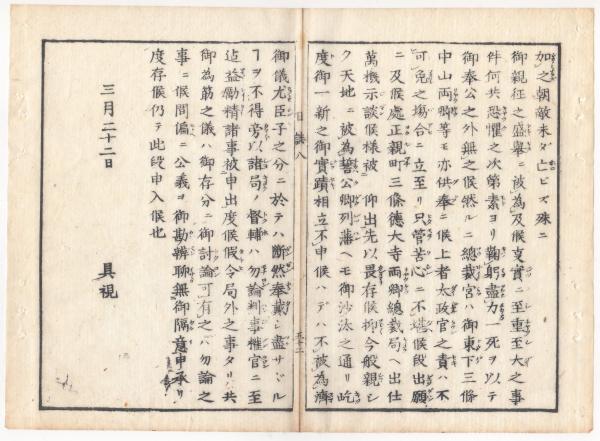 加之朝敵未ダ亡ビズ殊ニ
御親征之盛擧ニ被為及候支實ニ至重至大之事
件何共恐懼之次第素ヨリ鞠躬盡力一死ヲ以テ
御奉公之外無之候然ルニ總裁宮ハ御東下三條
中山両卿等モ亦供奉ニ候上者太政官之責ハ不
可免之塲合ニ立至リ只管苦心ニ不堪候段出願
ニ及候處正親町三條徳大寺両卿總裁局ヘ出仕
萬機示談候様被 仰出先以畏存候抑今般親シ
ク天地ニ被為誓公卿列藩ヘモ御沙汰之通リ屹
度御一新之御實蹟相立不申候ハデハ不被為濟
日誌八
五十二
御儀尤臣子之分ニ於テハ断然奉戴シ盡サヾル
ヿヲ不得旁以諸局ノ督輔ハ勿論判事権官ニ至
迠益勵精諸事被申出度候假令局外之事タリ共
御為筋之儀ハ御存分ニ御討論可有之ハ勿論之
事ニ候間偏ニ公義ヲ御勘辨聊無御隔意申承リ
度存候仍テ此段申入候也
三月二十二日
具視